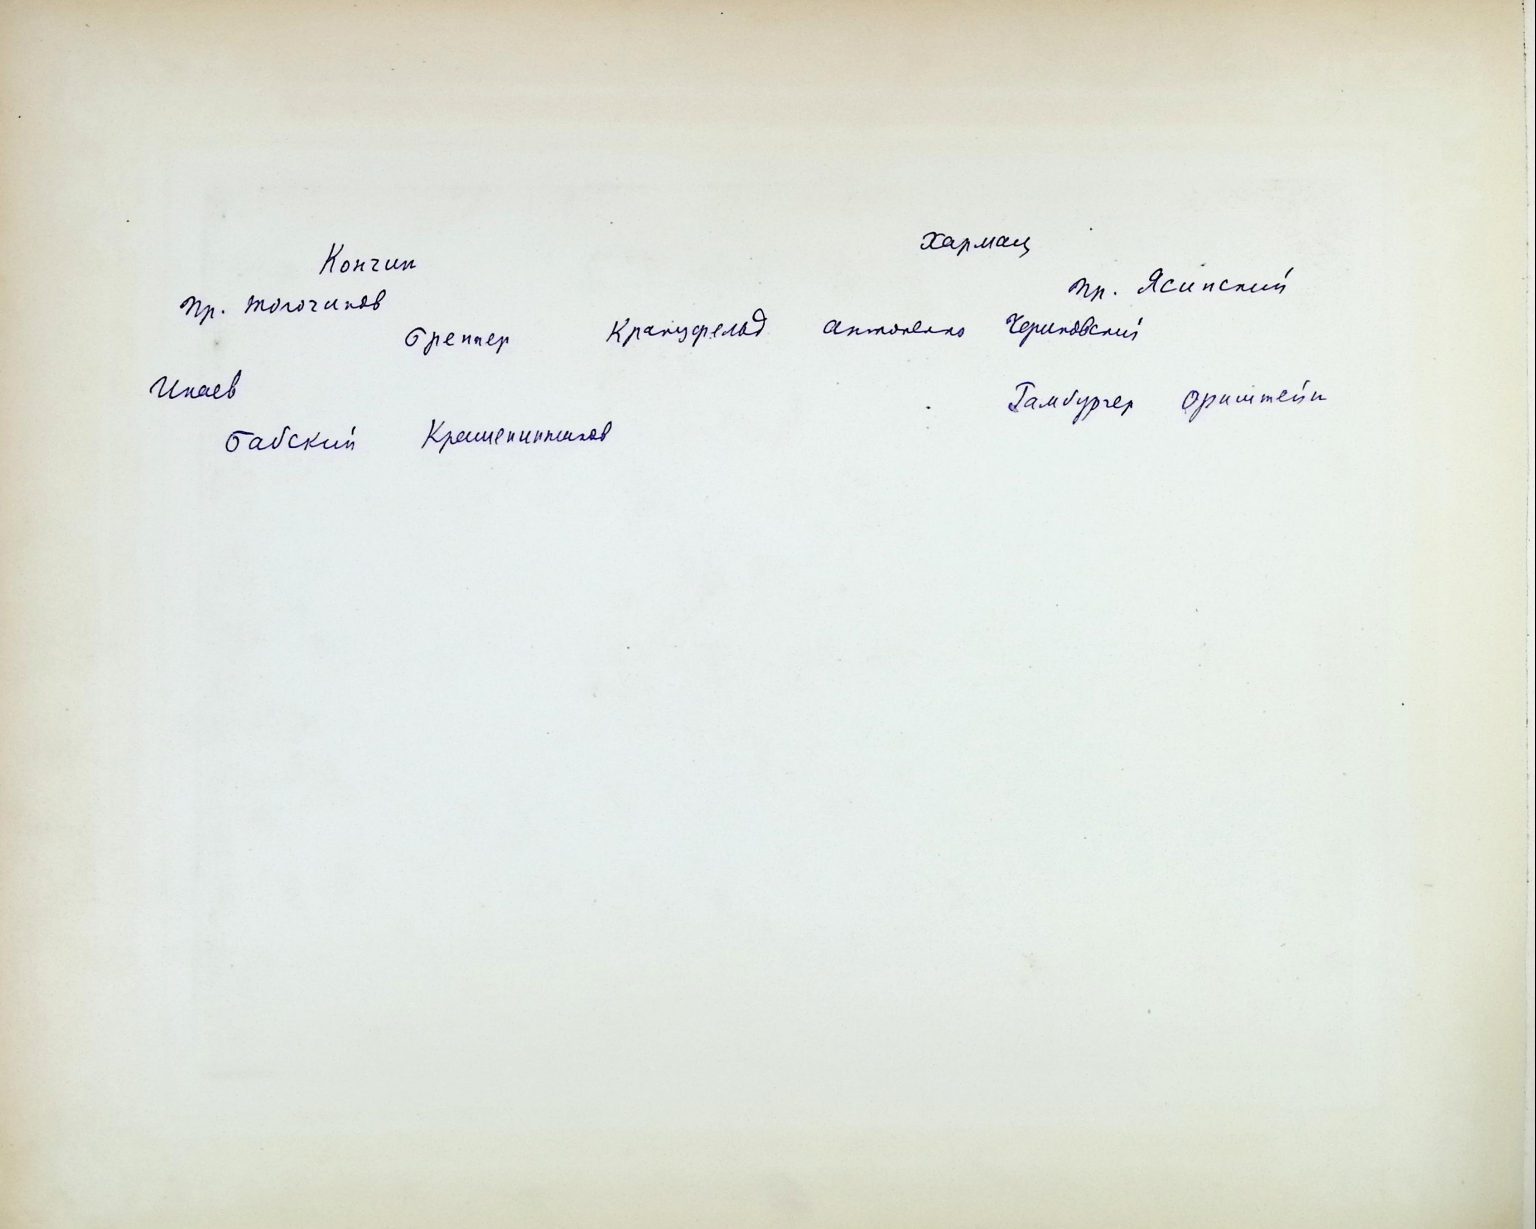 Хармац
Кончин
пр. Ясинский
пр. Толочинов
Бреннер Кранцфельд Антоненко Чериковский
Инаев
Гамбургер Орнштейн
Бабский Крашенинников